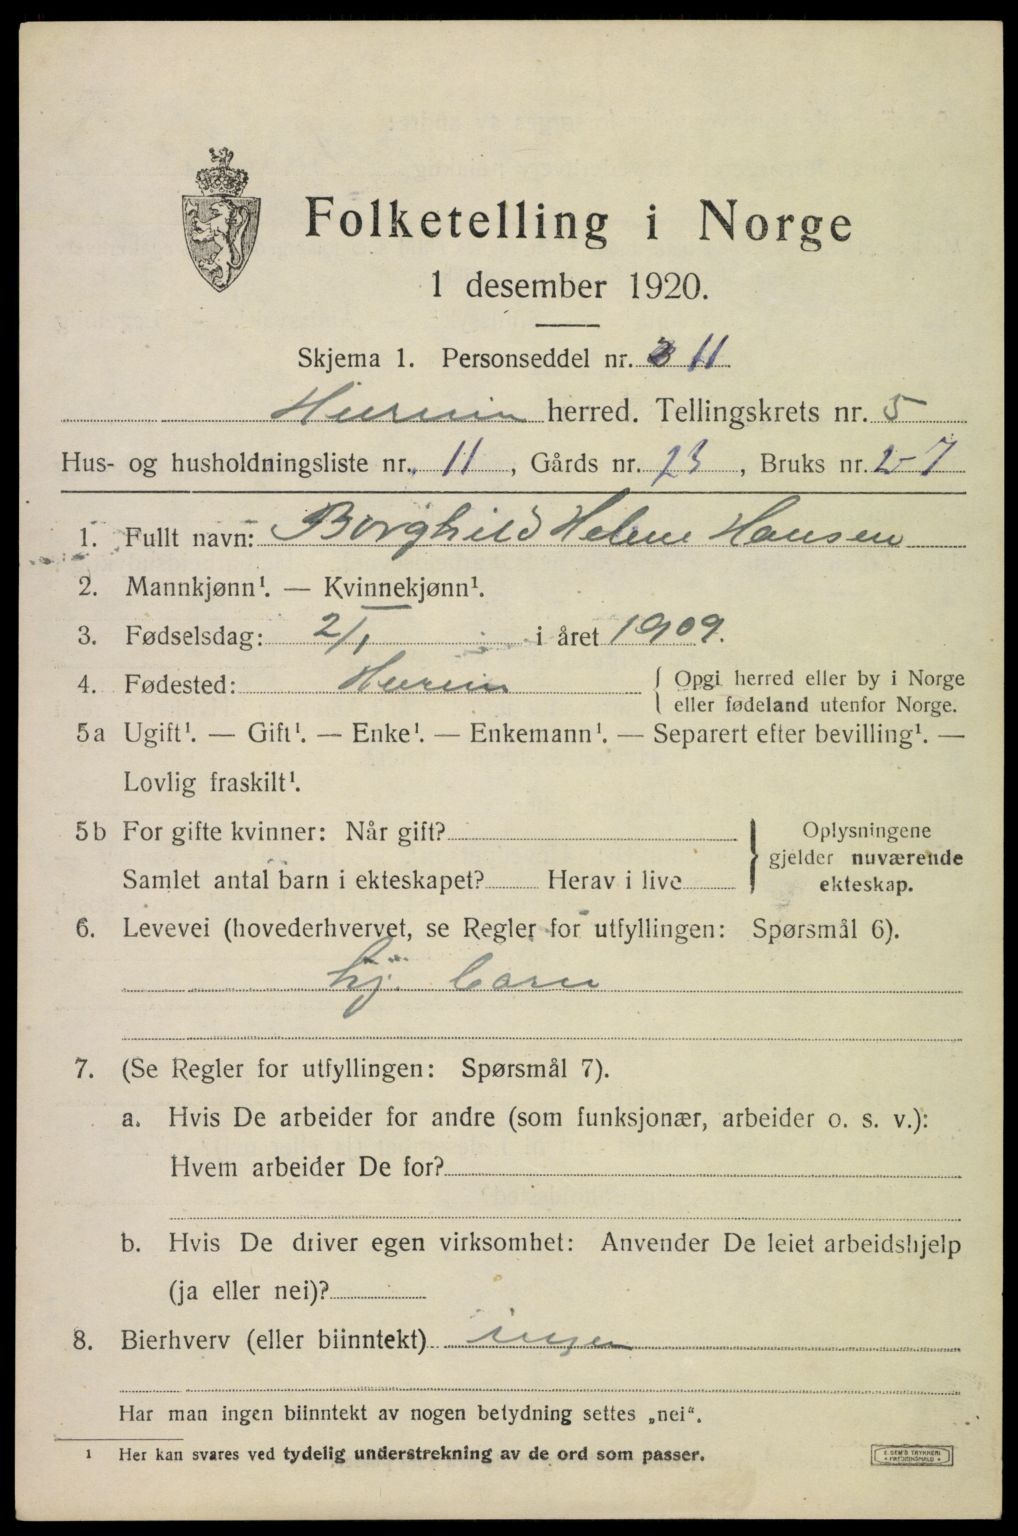 Folketelling i Norge
1 desember 1920.
Skjema 1. Personseddel nr. 11
Hurum herred. Tellingskrets nr. 5
Hus- og husholdningsliste nr. 11, Gårds nr. 73, Bruks nr. 27
1. Fullt navn: Borghild Helene Hansen
2. Mannkjønn¹. — Kvinnekjønn¹.
3. Fødselsdag: 2/1 i året 1909.
4. Fødested: Hurum { Opgi herred eller by i Norge
eller fødeland utenfor Norge.
5a Ugift¹. — Gift¹. — Enke¹. — Enkemann¹. — Separert efter bevilling¹. —
Lovlig fraskilt¹.
5b For gifte kvinner: Når gift?
Samlet antal barn i ekteskapet? Herav i live
} Oplysningene
gjelder nuværende
ekteskap.
6. Levevei (hovederhvervet, se Regler for utfyllingen: Spørsmål 6).
hj. barn
7. (Se Regler for utfyllingen: Spørsmål 7).
a. Hvis De arbeider for andre (som funksjonær, arbeider o. s. v.):
Hvem arbeider De for?
b. Hvis De driver egen virksomhet: Anvender De leiet arbeidshjelp
(ja eller nei)?
8. Bierhverv (eller biinntekt) ingen
Har man ingen biinntekt av nogen betydning settes „nei“.
¹ Her kan svares ved tydelig understrekning av de ord som passer.
E. SEM'S TRYKKERI
FREDRIKSHALD